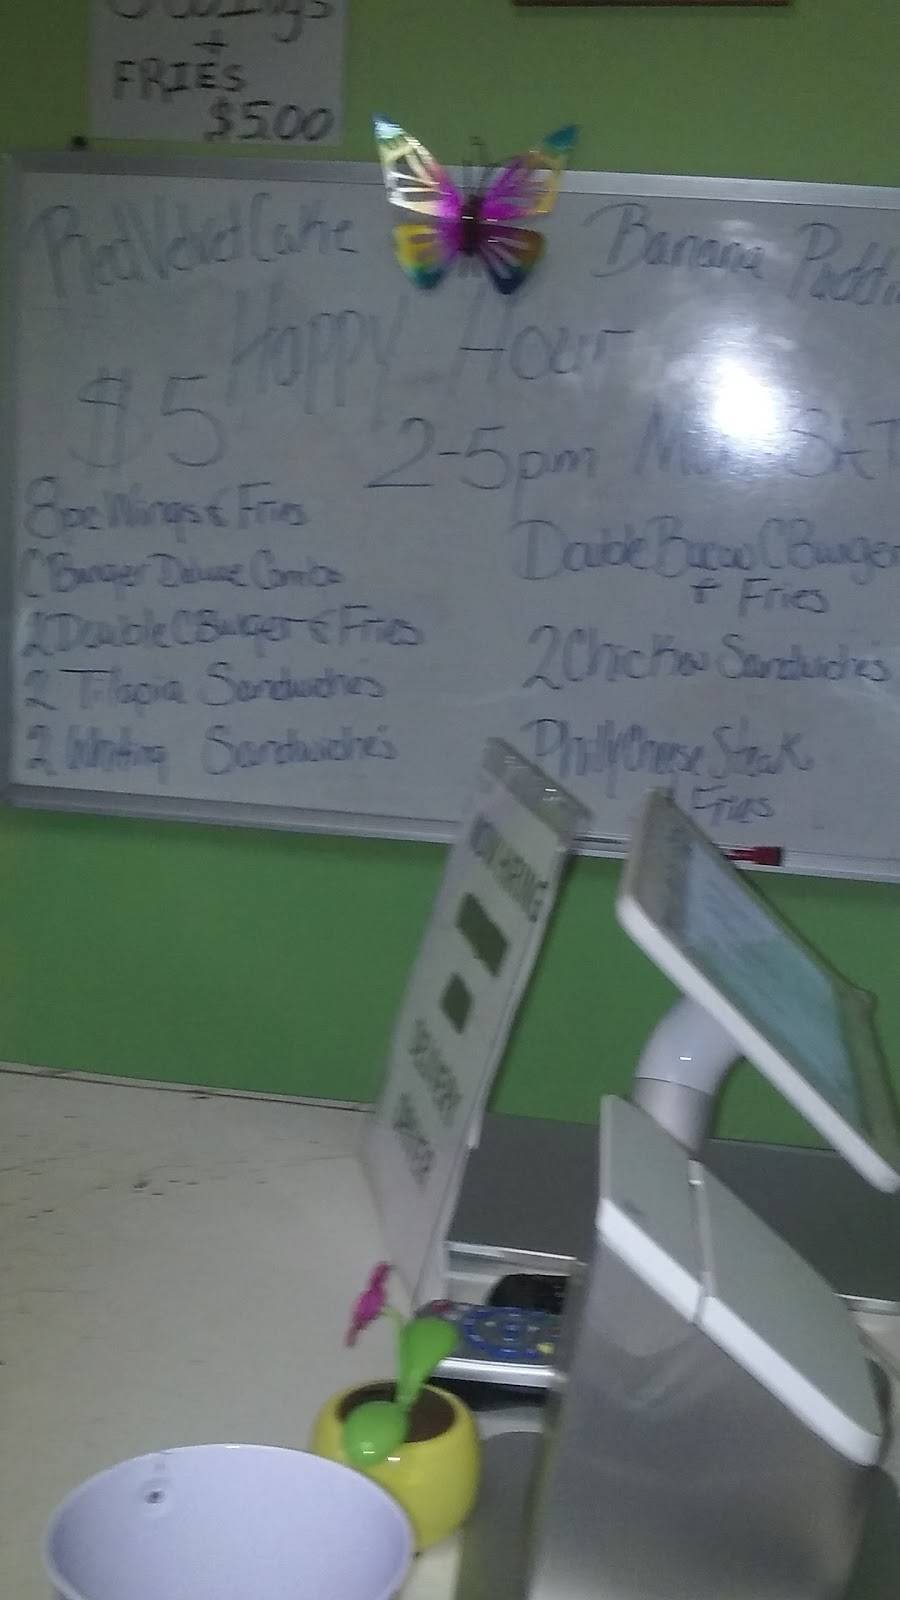 +
FRIES
$5.00
Red Velvet Cake
Banana Puddi
Happy Hour
$5
2-5pm
8pc Wings & Fries
C Burger Deluxe Combo
2 Double C Burger & Fries
2 Tilapia Sandwiches
2 Whiting Sandwiche's
Double Bacon C Burger
+ Fries
2 Chicken Sandwiche's
Philly Cheese Steak
Fries
NOW HIRING
DELIVERY
DRIVER